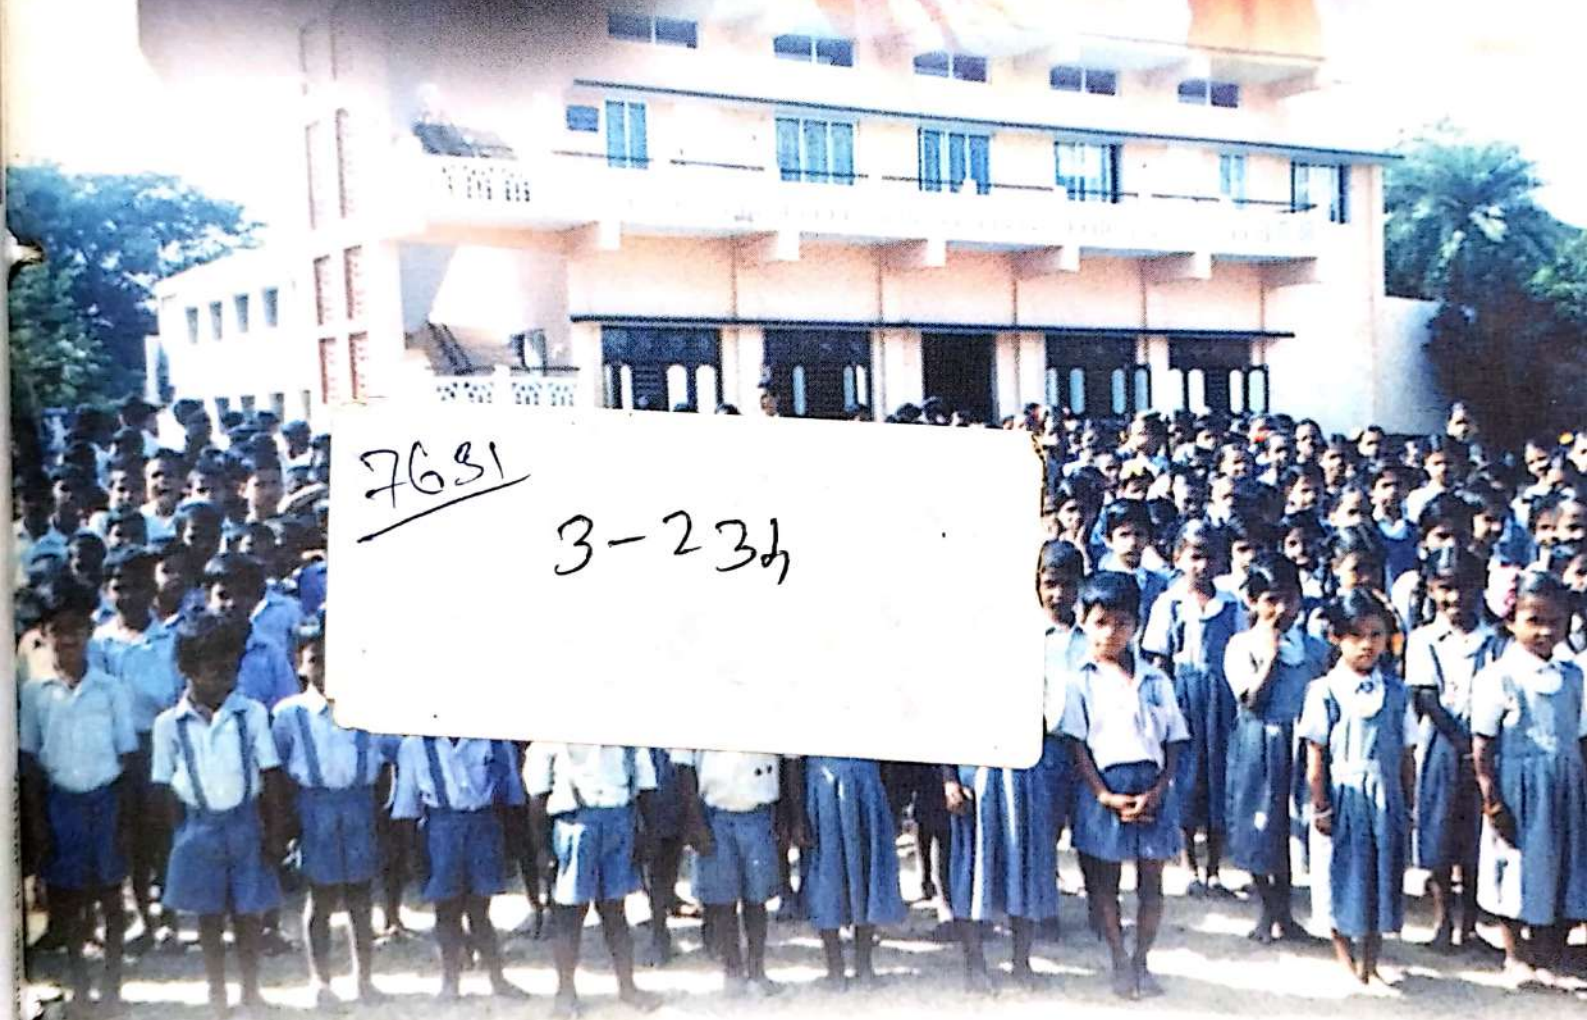 7631
3-234